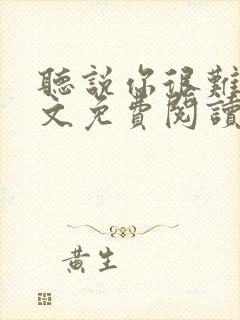 聽説你很難
文免費閱讀
黃生